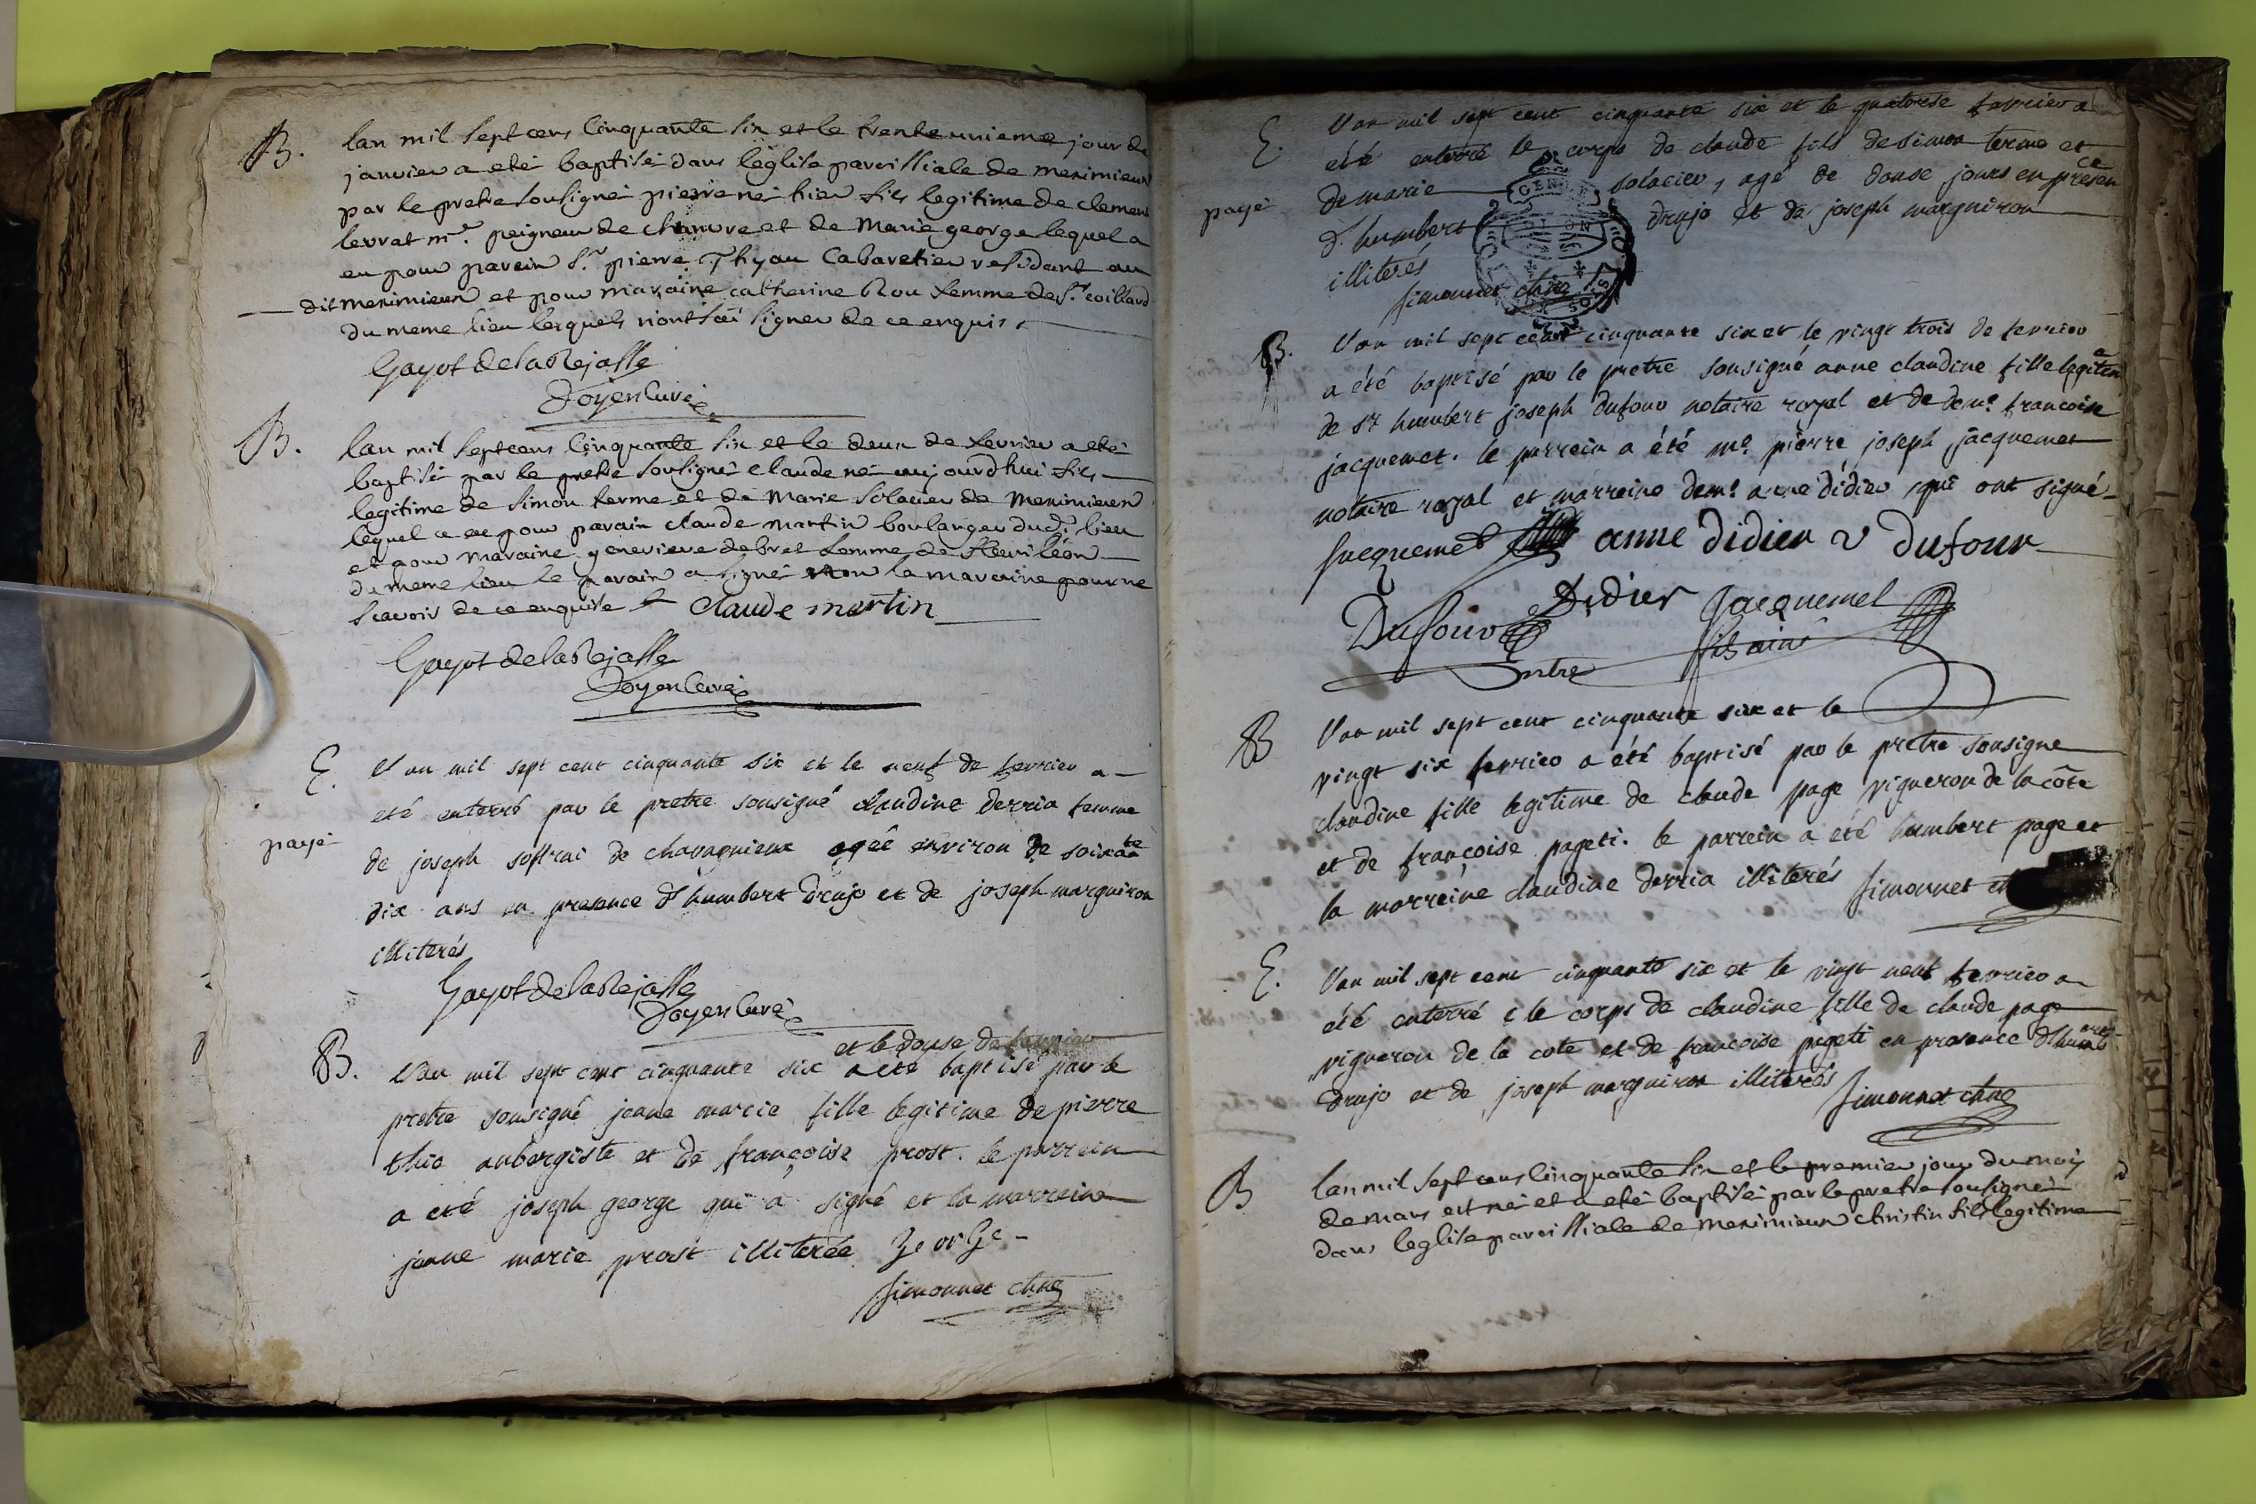 B.
lan mil sept cens Cinquante six et le trente unieme jour de
janvier a eté baptisé dans l'église paroissiale de meximieux
par le pretre soussigné pierre né hier fils legitime de clement
levrat me. peigneur de chanvre et de Marie george lequel a
eu pour parain Sr. pierre Thyau Cabaretier residant au
dit meximieux et pour maraine catherine Rou femme de Sr. coillard
du meme lieu lesquels n'ont scü signer de ce enquis.
Gayot de la Rejasse
Doyen Curé
B.
lan mil septcens Cinquante six et le deux de fevrier a eté
baptisé par le pretre soussigné claude né aujourd'hui fils
legitime de Simon terme et de Marie Solacier de Meximieux
lequel a eu pour parain claude martin boulanger dud. lieu
et pour maraine genevieve debret femme de
du meme lieu le parain a signé non la maraine pour ne
scavoir de ce enquise claude martin
Gayot de la Rejasse
Doyen Curé
E.
L'an mil sept cent cinquante six et le neuf de fevrier a
eté enterré par le pretre sousigné claudine derria femme
payé
de joseph soffrai de chavagnieux agée environ de soixante
dix ans en presence d'humbert drujo et de joseph marguiron
illiterés
Gayot de la Rejasse
Doyen Curé
et le douse de fevrier
B.
L'an mil sept cent cinquante six a eté baptisé par le
pretre sousigné jeane marie fille legitime de pierre
thio aubergiste et de françoise prost. le parrein
a eté joseph george qui a signé et la marreine
jeane marie prost illiterée George
Simonnet
E.
L'an mil sept cent cinquante six et le quatorse fevrier a
eté enterré le corps de claude fils de simon terme et
de marie solacier, agé de douse jours en presence
payé
d'humbert drujo et de joseph marguiron
illiterés
Simonnet
B.
L'an mil sept cent cinquante six et le vingt trois de fevrier
a été baptisé par le pretre sousigné anne claudine fille legitime
de sr humbert joseph dufour notaire royal et de deme. francoise
jacquemet. le parrein a été me. pierre joseph jacquemet
notaire royal et marreine deme. anne didier qui ont signé
Jacquemet anne didier v dufour
Dufour Didier Jacquemet
fils ainé
B
L'an mil sept cent cinquante six et le
vingt six fevrier a été baptisé par le pretre sousigne
claudine fille legitime de claude page vigneron de la côte
et de françoise pageti. le parrein a été humbert page et
la marreine claudine derria illiterés Simonnet
E.
L'an mil sept cent cinquante six et le vingt neuf fevrier a
été enterré le corps de claudine fille de claude page
vigneron de la cote et de francoise pageti en presence d'humbert
drujo et de joseph marguiron illiterés
Simonnet
B
lan mil sept cens Cinquante six et le premier jour du mois
de mars est né et a eté baptisé par le pretre soussigné
dans l'eglise paroissiale de meximieux christin fils legitime